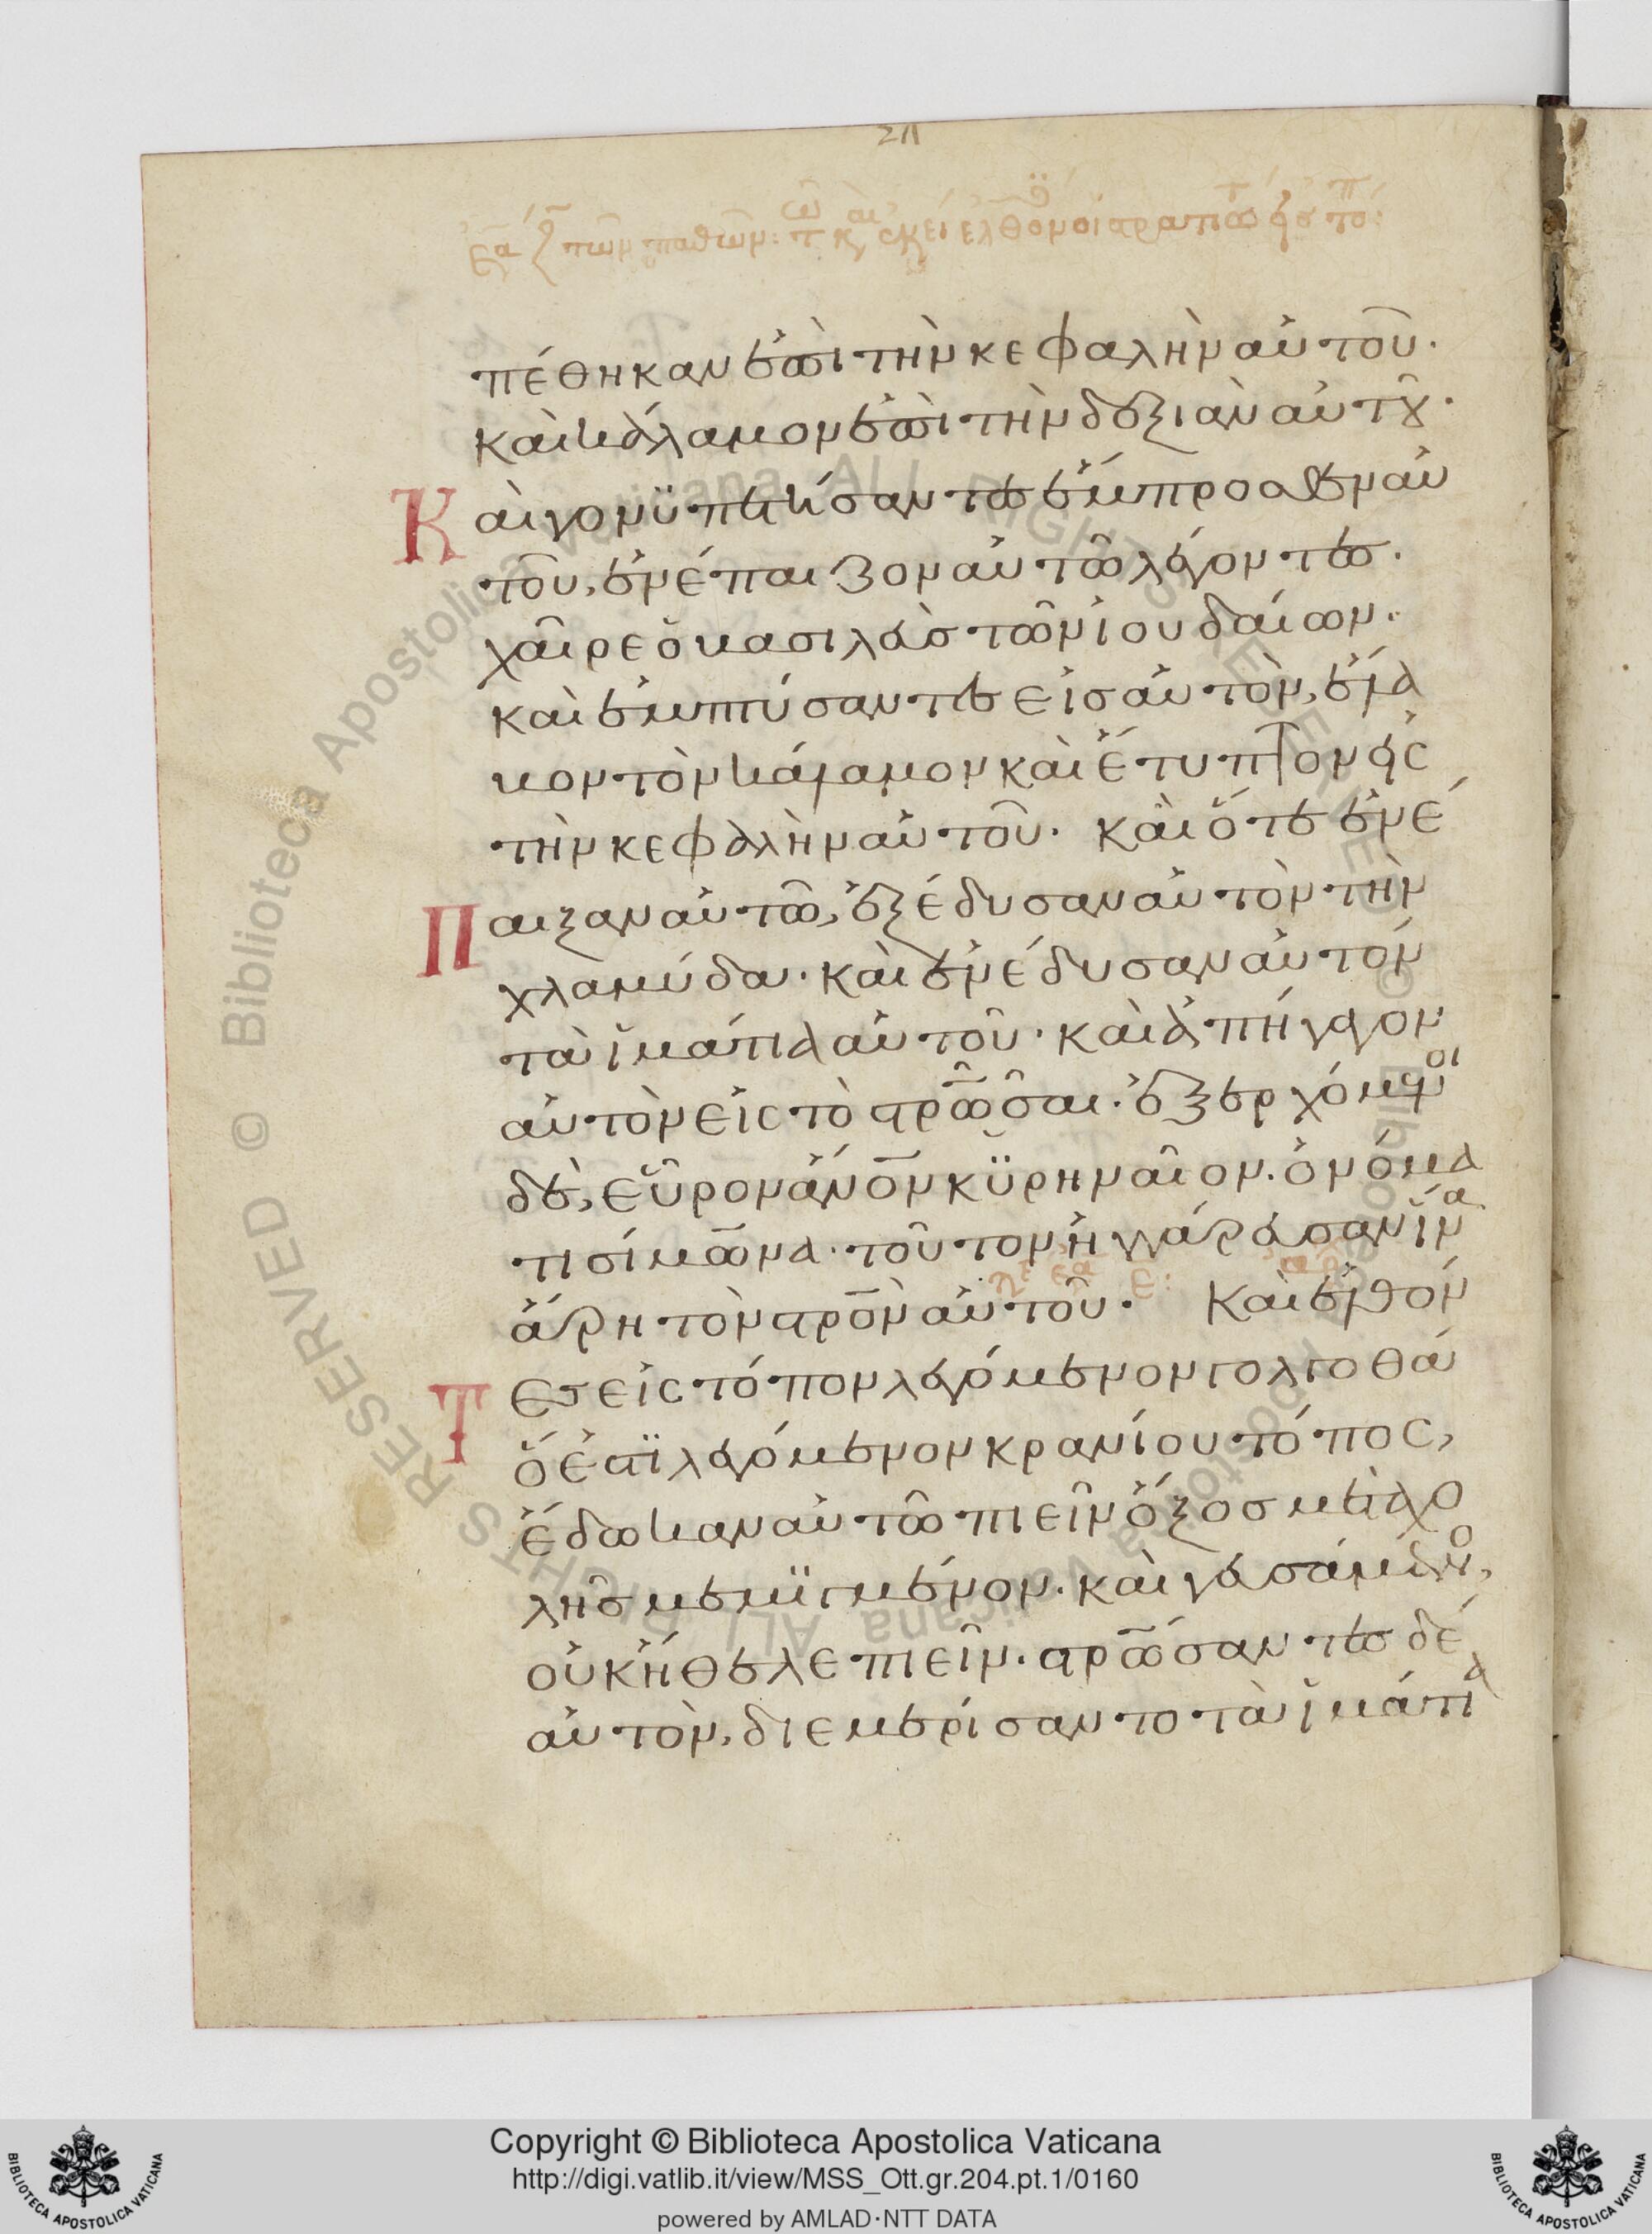 πέθηκαν ἐπὶ τὴν κεφαλὴν αὐτοῦ·
καὶ κάλαμον ἐπὶ τὴν δεξιὰν αὐτοῦ·
Καὶ γονϋπετήσαντες ἔμπροσθεν αὐ
τοῦ, ἐνέπαιζον αὐτῶ λέγοντες·
χαῖρε ὁ βασιλεὺς τῶν ἰουδαίων·
καὶ ἐμπτύσαντες εἰς αὐτὸν, ἔλα
βον τὸν κάλαμον καὶ ἔτυπτον εἰς
τὴν κεφαλὴν αὐτοῦ· καὶ ὅτε ἐνέ
Παιξαν αὐτῶ, ἐξέδυσαν αὐτὸν τὴν
χλαμύδα· καὶ ἐνέδυσαν αὐτὸν
τὰ ἱμάτια αὐτοῦ· καὶ ἀπήγαγον
αὐτὸν εἰς τὸ στρω̅σαι· ἐξερχόμενοι
δὲ, εὗρον ἄνο̅ν κϋρηναῖον· ὀνόμα
τι σίμωνα· τοῦτον ἠγγάρευσαν ἵνα
ἄρη τὸν στρο̅ν αὐτοῦ· Καὶ ἐλθόν
Τες εἰς τόπον λεγόμενον γολγοθά
ὅ ἐστϊ λεγόμενον κρανίου τόπος,
ἔδωκαν αὐτῶ πιεῖν ὄξος μετὰ χο
λῆς μεμϊγμένον· καὶ γευσάμενος,
οὐκ ἤθελε πιεῖν· στρω̅σαντες δὲ
αὐτὸν, διεμερίσαντο τὰ ἱμάτια
Copyright © Biblioteca Apostolica Vaticana
http://digi.vatlib.it/view/MSS_Ott.gr.204.pt.1/0160
powered by AMLAD·NTT DATA
BIBLIOTECA APOSTOLICA VATICANA
BIBLIOTECA APOSTOLICA VATICANA